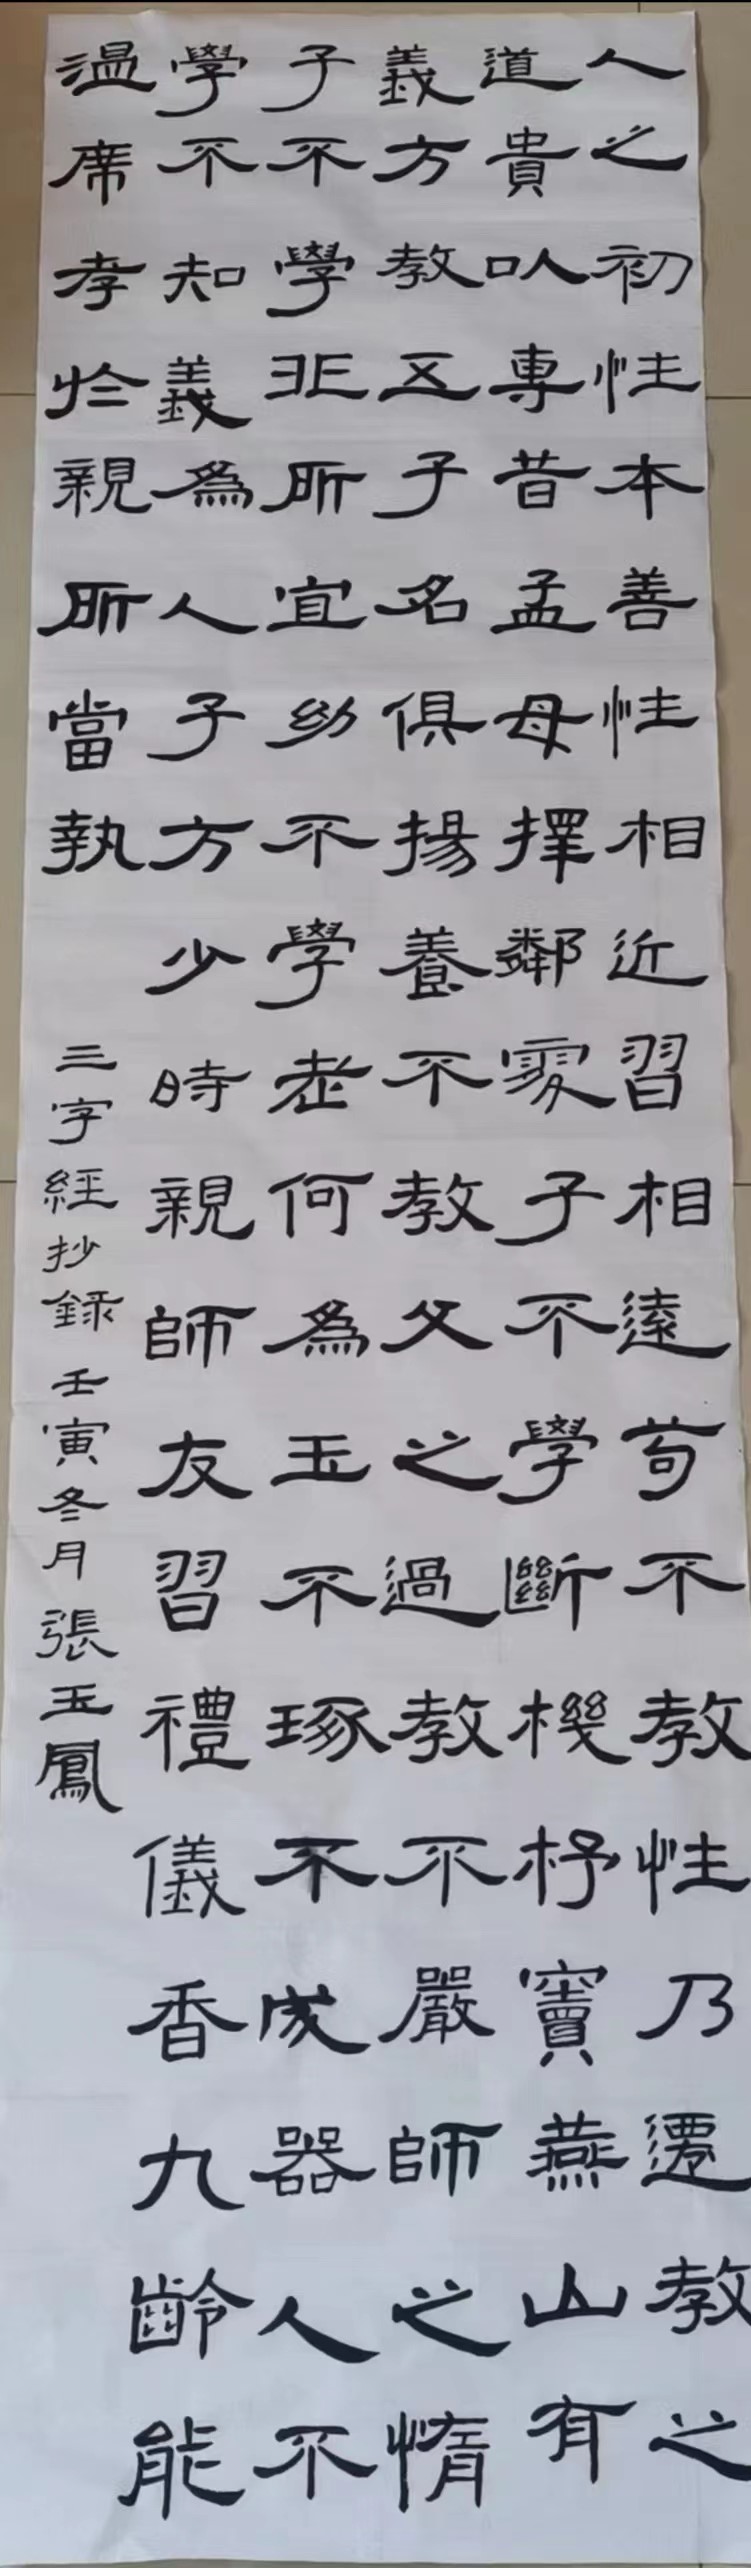 人之初性本善性相近習相遠苟不教性乃遷教之
道貴以專昔孟母擇鄰處子不學斷機杼竇燕山有
義方教五子名俱揚養不教父之過教不嚴師之惰
子不學非所宜幼不學老何為玉不琢不成器人不
學不知義為人子方少時親師友習禮儀香九齡能
溫席孝於親所當執
三字經抄録壬寅冬月張玉鳳